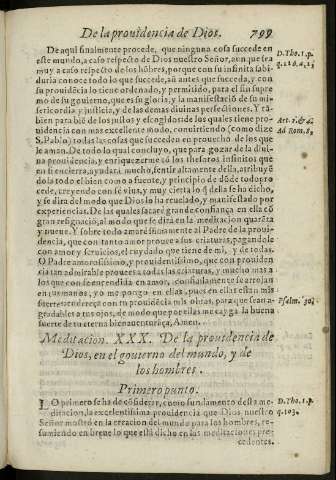 De la prouidencia de Dios. 799
De aqui finalmente procede, que ninguna cosa succede en
este mundo, a caso respecto de Dios nuestro Señor, aun que sea
muy a caso respecto de los hõbres, porque con su infinita sabi-
duria conoce todo lo que succede, aũ antes que succeda, y con
su prouidẽcia lo tiene ordenado, y permitido, para el fin supre
mo de su gouierno, que es su gloria, y la manifestaciõ de su mi-
sericordia y justicia, y de las demas diuinas perfectiones. Y tã-
bien para biẽ de los justos y escogidos de los quales tiene pro-
uidencia con mas excellente modo, conuirtiendo (como dize
S. Pablo) todas las cosas que succeden en prouecho de los que
le aman. De todo lo qual concluyo, que para gozar de la diui-
na prouidencia, y enriquezerme cõ los thesoros infinitos que
en si encierra, ayudará mucho, sentir altamente della, atribuyẽ
dola todo el bien como a fuente, y principio de dõde todo pro
cede, creyendo con fè viua, y muy cierta lo q̃ della se ha dicho,
y se dira del modo que Dios lo ha reuelado, y manifestado por
experiencias. De las quales sacarè grande confiança en ella cõ
gran resignaciõ, al modo que se dirà en la meditacion quarẽta
y nueue. Y sobre todo amarè finissimamente al Padre de la proui-
dencia, que con tanto amor prouee a sus criaturas, pagandole
con amor y seruicios, el cuydado que tiene de mi, y de todas.
O Padre amorosissimo, y prouidentissimo, que con prouiden
cia tan admirable proueea a todas las criaturas, y mucho mas a
los que con fe encendida en amor, confiadamente se arrojan
en tus manos, yo me pongo en ellas, pues en ellas estan mis
suertes: endereça con tu prouidẽcia mis obras, para que sean a-
gradables a tus ojos, de modo que por ellas me cayga la buena
suerte de tu eterna bienauenturãça, Amen.
D. Tho. 1. p.
Art. 1. & 4.
Ad Rom. 8
Psalm. 30.
Meditacion. XXX. De la prouidencia de
Dios, en el gouierno del mundo, y de
los hombres.
Primero punto.
LO primero se ha de cõsiderar, como fundamento desta me-
ditacion, la excelentissima prouidencia que Dios nuestro
Señor mostrò en la creacion del mundo para los hombres, re-
sumiendo en breue lo que està dicho en las meditaciones pre-
cedentes.
D. Tho. 1. p.
q. 103.